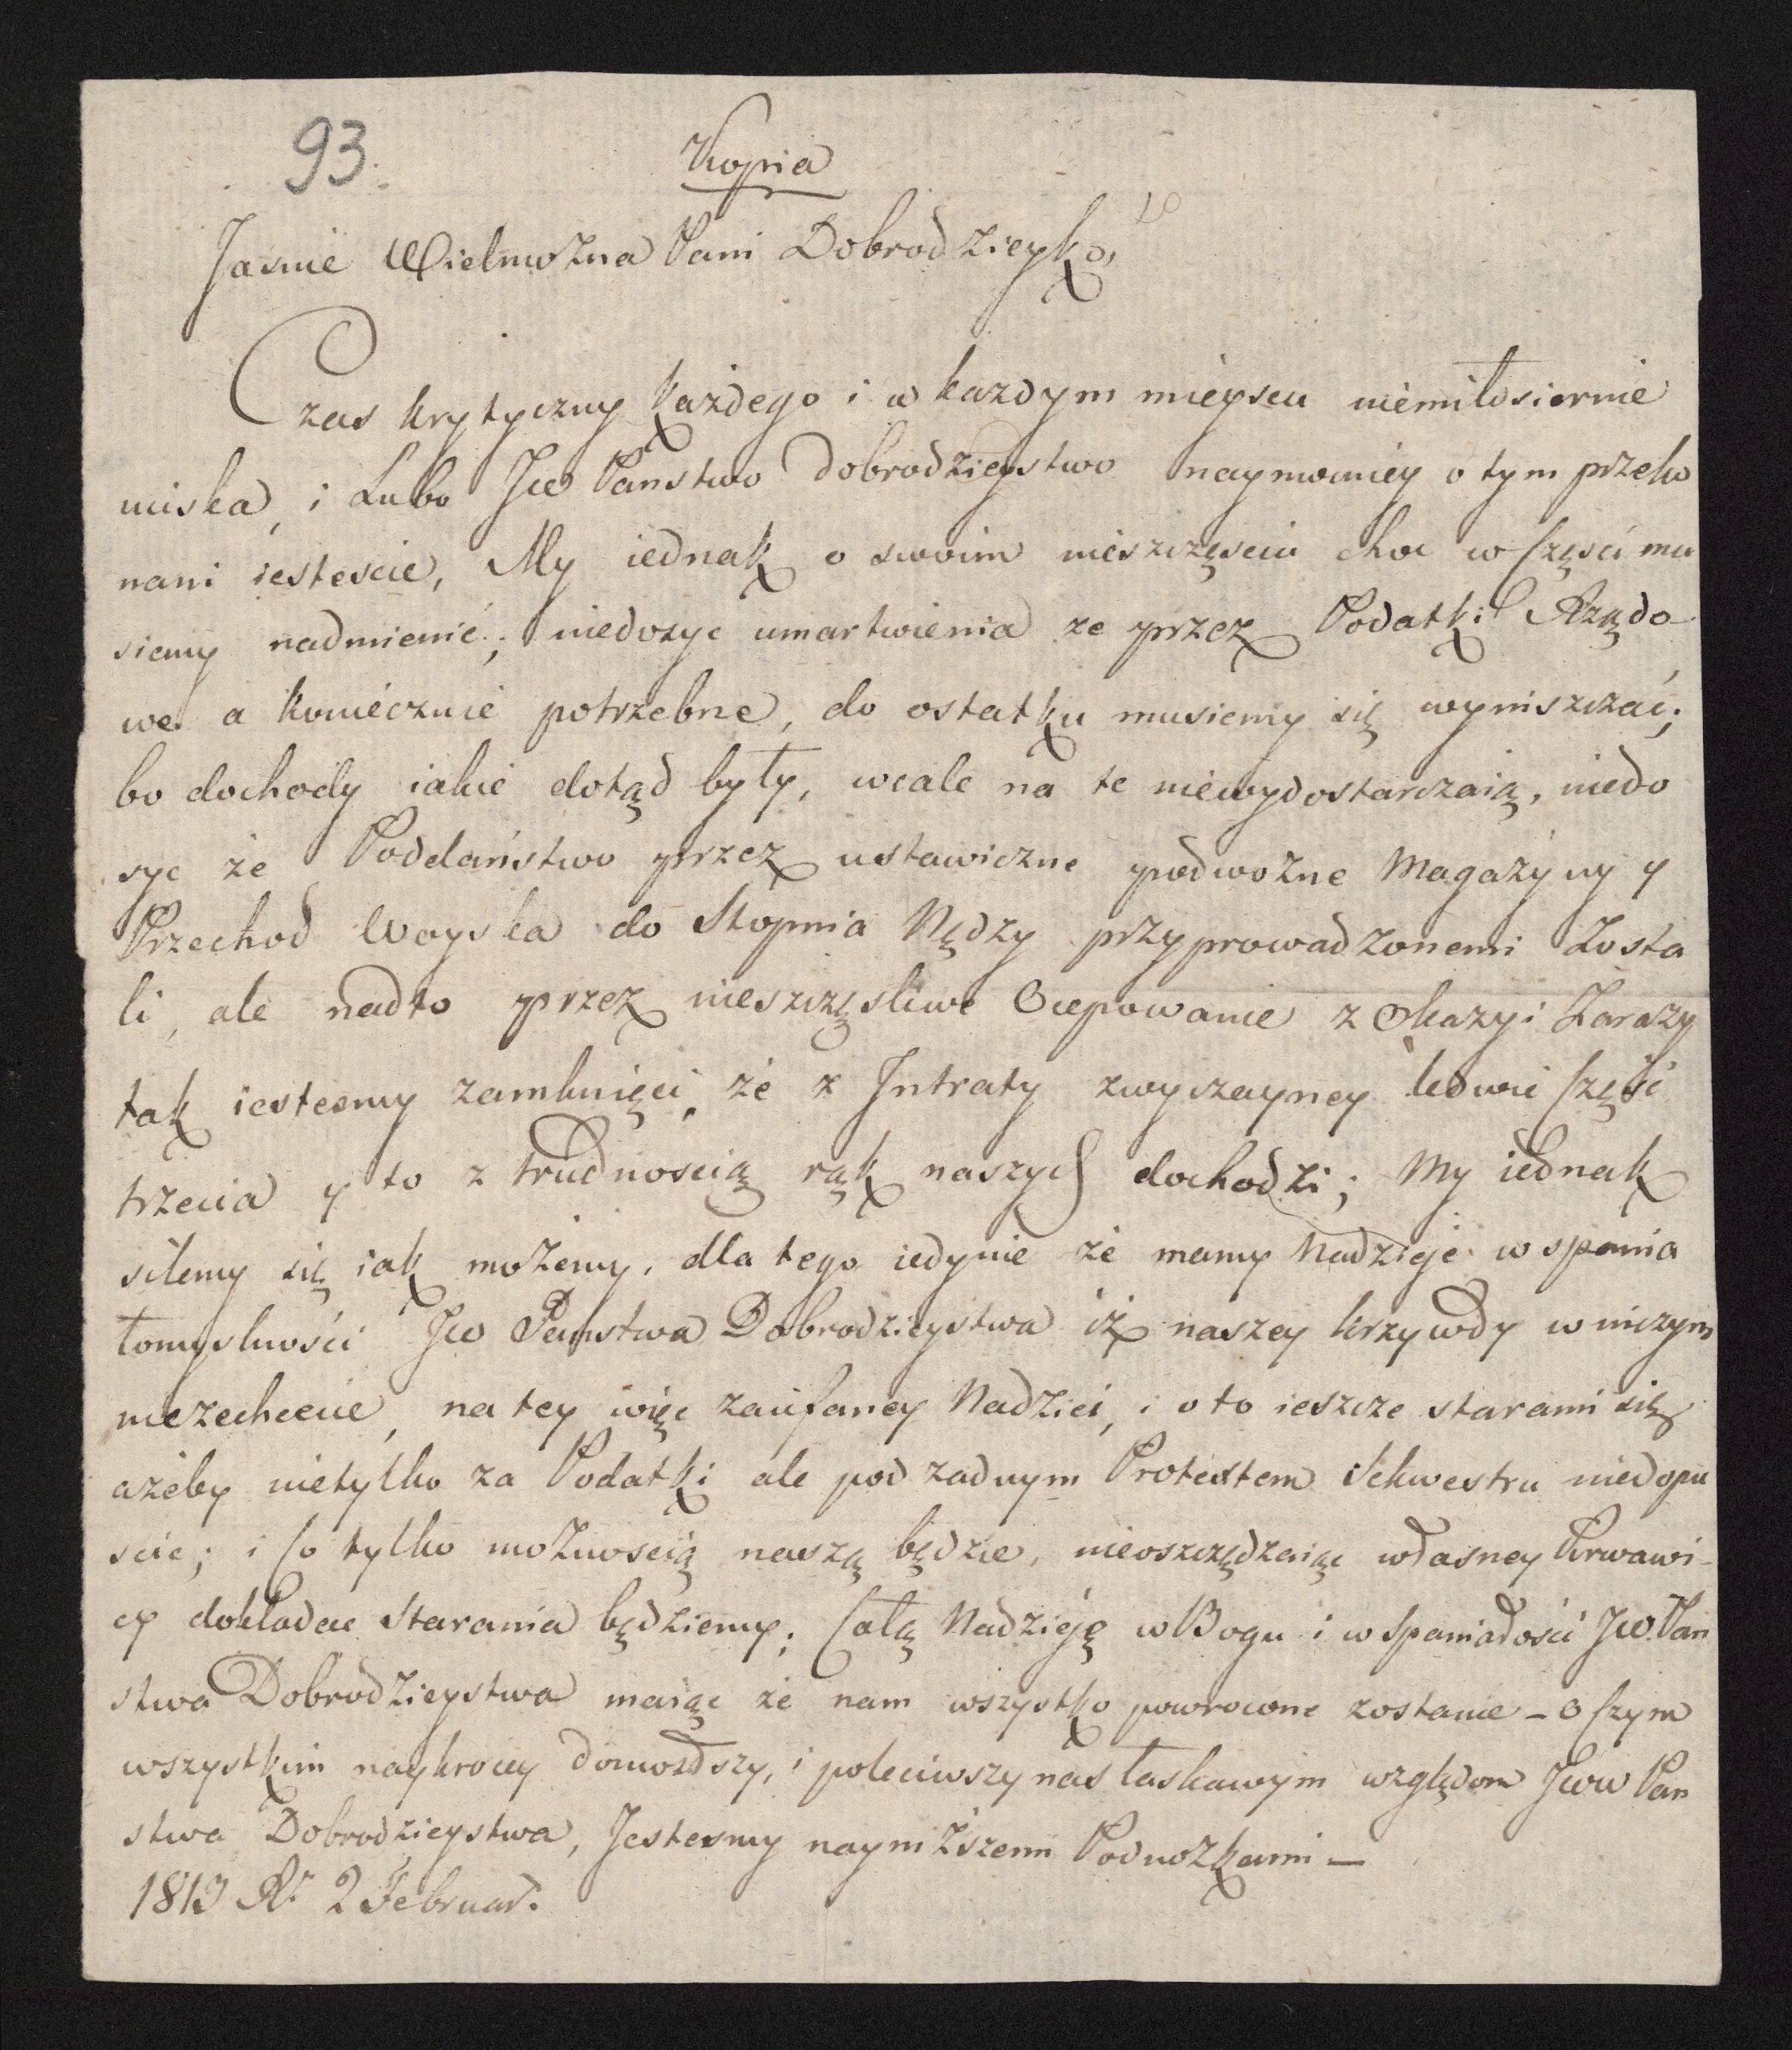 93.
Kopia
Jasnie Wielmożna Pani Dobrodzieyko,
Czas krytyczny każdego i w kazdym mieyscu niemiłosiernie
uciska, i Lubo Jw Panstwo Dobrodzieystwo naymocniey o tym przeko
nani iestescie, My iednak o swoim nieszczęsciu choc w Części mu
siemy nadmienić; niedosyc umartwienia ze przez Podatki Rządo
we a koniecznie potrzebne, do ostatku musiemy się wyniszczać;
bo dochody iakie dotąd były, wcale na te niewydostarczaią, niedo
syc że Poddaństwo przez ustawiczne podwozne Magazyny y
Przechod Woyska do Stopnia Nędzy przyprowadzonemi Zosta
li, ale nadto przez nieszczęsliwe Ocepowanie z Okazyi Zarazy
tak iestesmy zamknięci, że z Jntraty zwyczayney ledwie Część
trzecia y to z trudnoscią rąk naszych dochodzi; My iednak
silemy się iak możemy, dla tego iedynie że mamy Nadzieje w spania
łomyslności Jw Panstwa Dobrodzieystwa iż naszey krzywdy w niczym
niezechcecie, na tey więc zaufaney Nadziei, i o to ieszcze starami się
ażeby nietylko za Podatki ale pod żadnym Protextem Sekwestru niedopu
scic; i Co tylko możnoscią naszą będzie, nieoszczędzaiąc własney Krwawi-
cy dokładac Starania będziemy; Całą Nadzieję w Bogu i w Spaniałości JW. Pan
stwa Dobrodzieystwa maiąc że nam wszystko powrocone zostanie – o Czym
wszystkim naykrocey doniosłszy, i poleciwszy nas łaskawym względom Jww Pan
stwa Dobrodzieystwa, Jestesmy nayniższemi Podnożkami –
1813 Rr. 2 Februar.